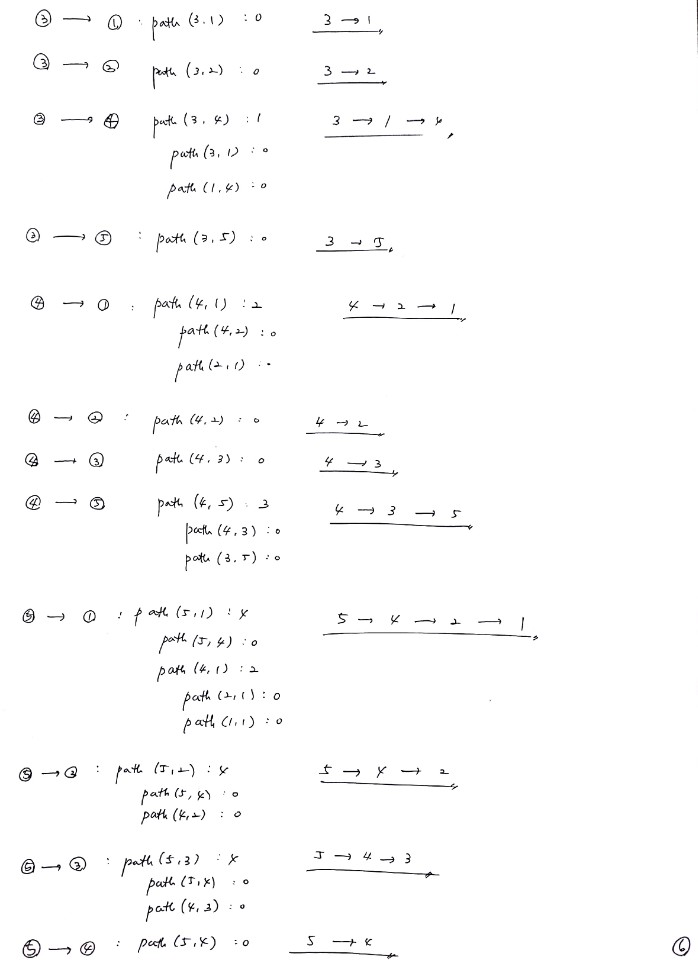 ③ → ① : path (3,1) : 0 3 → 1
③ → ② path (3,2) : 0 3 → 2
③ → ④ path (3,4) : 1 3 → 1 → 4
path (3,1) : 0
path (1,4) : 0
③ → ⑤ : path (3,5) : 0 3 → 5
④ → ① : path (4,1) : 2 4 → 2 → 1
path (4,2) : 0
path (2,1) : 0
④ → ② : path (4,2) : 0 4 → 2
④ → ③ path (4,3) : 0 4 → 3
④ → ⑤ path (4,5) : 3 4 → 3 → 5
path (4,3) : 0
path (3,5) : 0
⑤ → ① : path (5,1) : 4 5 → 4 → 2 → 1
path (5,4) : 0
path (4,1) : 2
path (2,1) : 0
path (1,1) : 0
⑤ → ② : path (5,2) : 4 5 → 4 → 2
path (5,4) : 0
path (4,2) : 0
⑤ → ③ : path (5,3) : 4 5 → 4 → 3
path (5,4) : 0
path (4,3) : 0
⑤ → ④ : path (5,4) : 0 5 → 4
⑥